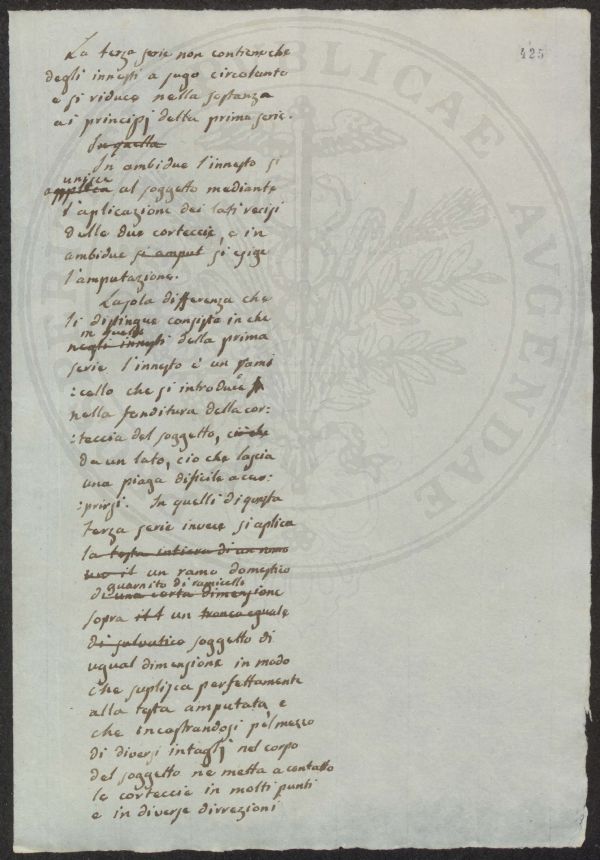 425
La terza serie non contiene che
degli innesti a sugo circolante
e si riduce nella sostanza
ai principj della prima serie.
In quella
In ambidue l'innesto si
unisce
applica al soggetto mediante
l'aplicazione dei lati recisi
delle due corteccie, e in
ambidue si amput si esige
l'amputazione.
La sola differenza che
li distingue consiste in che
in quelli
negli innesti della prima
serie l'innesto è un rami
:cello che si introduce
nella fenditura della cor:
:teccia del soggetto, ciò che
da un lato, cio che lascia
una piaga dificile a cuo:
:prirsi. In quelli di questa
terza serie invece si aplica
la testa intiera di un ramo
un ramo domestico
guarnito di ramicelli
di una certa dimensione
sopra un tronco eguale
di salvatico soggetto di
ugual dimensione in modo
che suplisca perfettamente
alla testa amputata e
che incastrandosi pel mezzo
di diversi intaglj nel corpo
del soggetto ne metta a contatto
le corteccie in molti punti
e in diverse dirrezioni
PUBLICAE
AUGENDAE